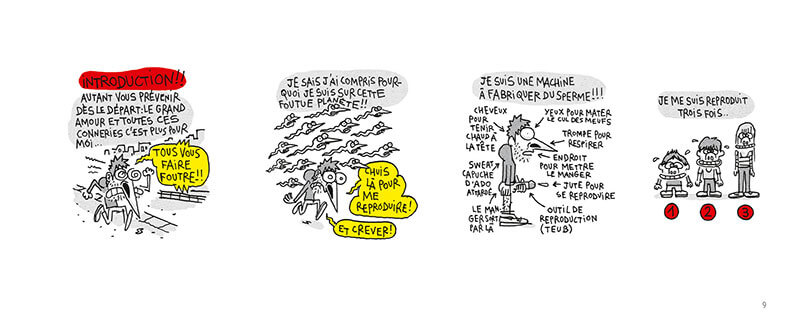 INTRODUCTION!!
AUTANT VOUS PRÉVENIR
DÈS LE DÉPART: LE GRAND
AMOUR ET TOUTES CES
CONNERIES C'EST PLUS POUR
MOI...
TOUS VOUS
FAIRE
FOUTRE!!
JE SAIS J'AI COMPRIS POUR-
QUOI JE SUIS SUR CETTE
FOUTUE PLANÈTE!!
CHUIS
LÀ POUR
ME
REPRODUIRE!
ET CREVER!
JE SUIS UNE MACHINE
À FABRIQUER DU SPERME!!!
CHEVEUX
POUR
TENIR
CHAUD À
LA TÊTE
YEUX POUR MATER
LE CUL DES MEUFS
TROMPE POUR
RESPIRER
ENDROIT
POUR METTRE
LE MANGER
SWEAT
CAPUCHE
D'ADO
ATTARDÉ
JUTE POUR
SE REPRODUIRE
LE MAN-
GER SORT
PAR LÀ
OUTIL DE
REPRODUCTION
(TEUB)
JE ME SUIS REPRODUIT
TROIS FOIS..
1
2
3
9